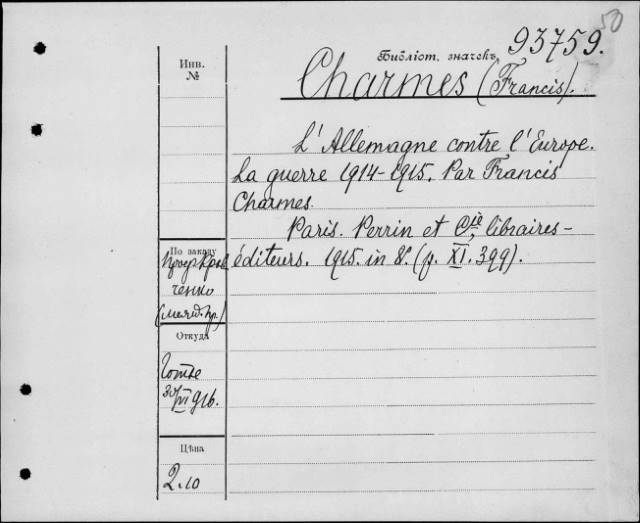 50
Библіот. значекъ 93759.
Инв.
№
Charmes (Francis).
L'Allemagne contre l'Europe.
La guerre 1914-1915. Par Francis
Charmes.
Paris. Perrin et Cie, libraires-
éditeurs. 1915. in 8°. (p. XI. 399).
По заказу
ченко
Откуда
30/VI 916.
Цѣна
2.10